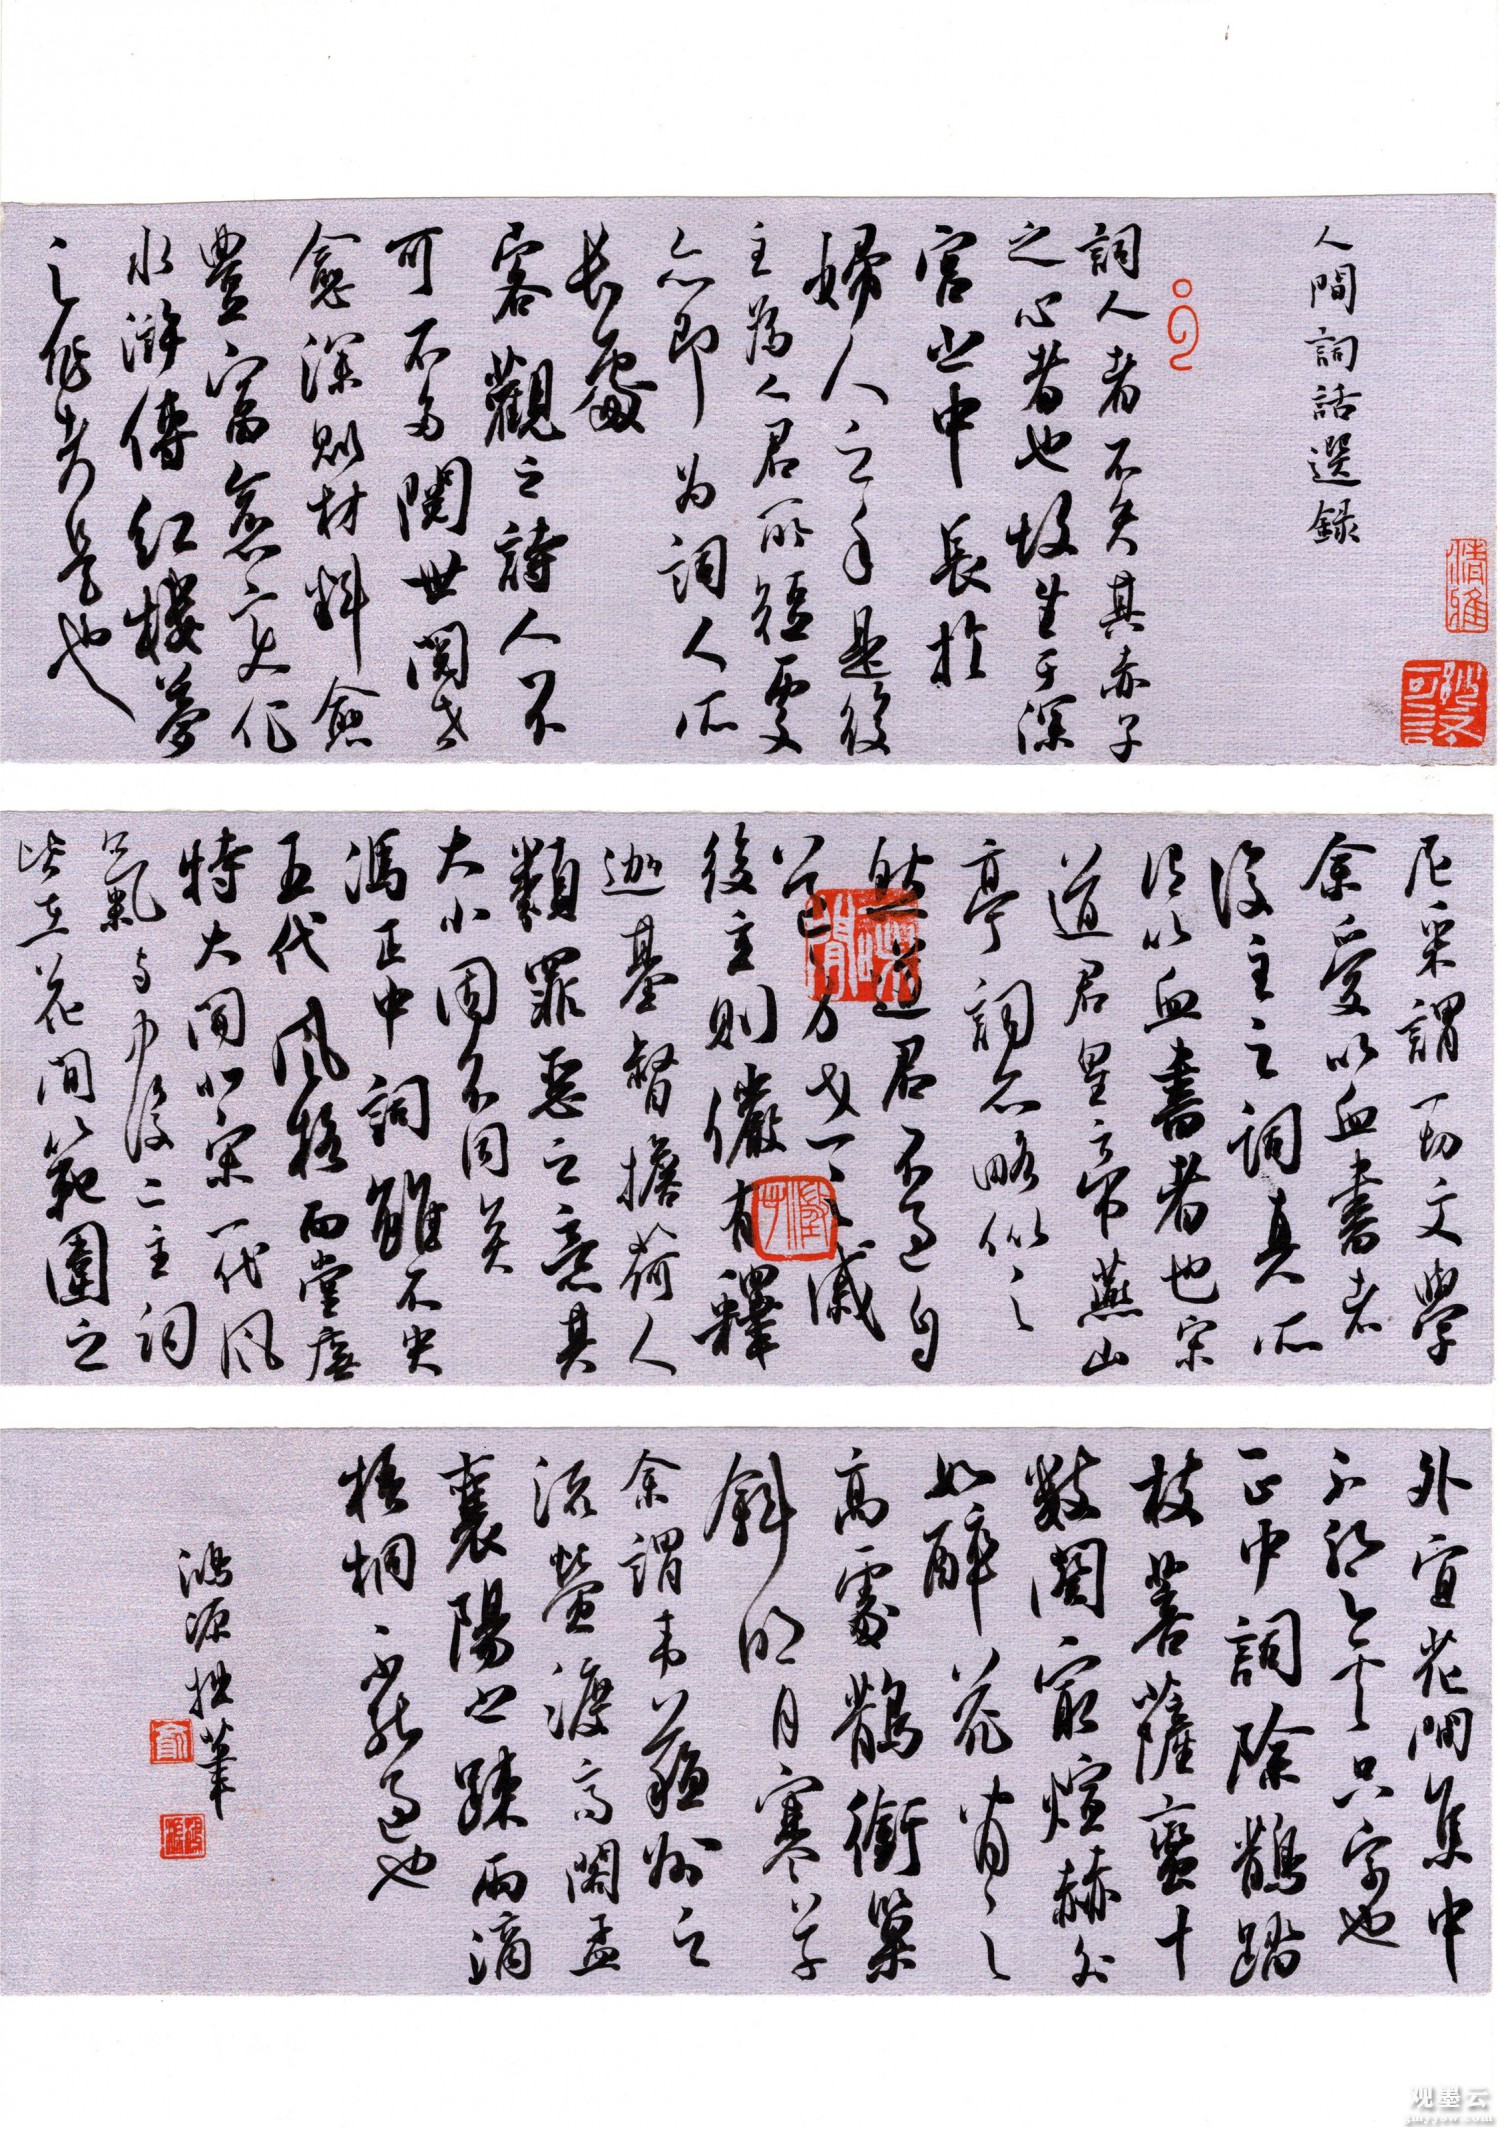 人間詞話選録
詞人者不失其赤子
之心者也故生于深
宫之中長於
婦人之手是後
主為人君所短處
亦即为詞人所
長處
客觀之詩人不
可不多閱世閱世
愈深則材料愈
豐富愈變化
水滸傳紅樓夢
之作者是也
尼采謂一切文學
余愛以血書者
後主之詞真所
謂以血書者也宋
道君皇帝燕山
亭詞亦略似之
然道君不過自
道身世之戚
後主則儼有釋
迦基督擔荷人
類罪惡之意其
大小固不同矣
馮正中詞雖不失
五代風格而堂廡
特大開北宋一代風
氣与中後二主詞
皆在花間範圍之
外宜花間集中
不登其只字也
正中詞除鵲踏
枝菩薩蠻十
數闋最煊赫外
如醉花間之
高處鵲銜巢
斜明月寒草
余謂韋蘇州之
流螢渡高閣孟
襄陽之疎雨滴
梧桐不能過也
鴻源拙筆
清雅
观墨云